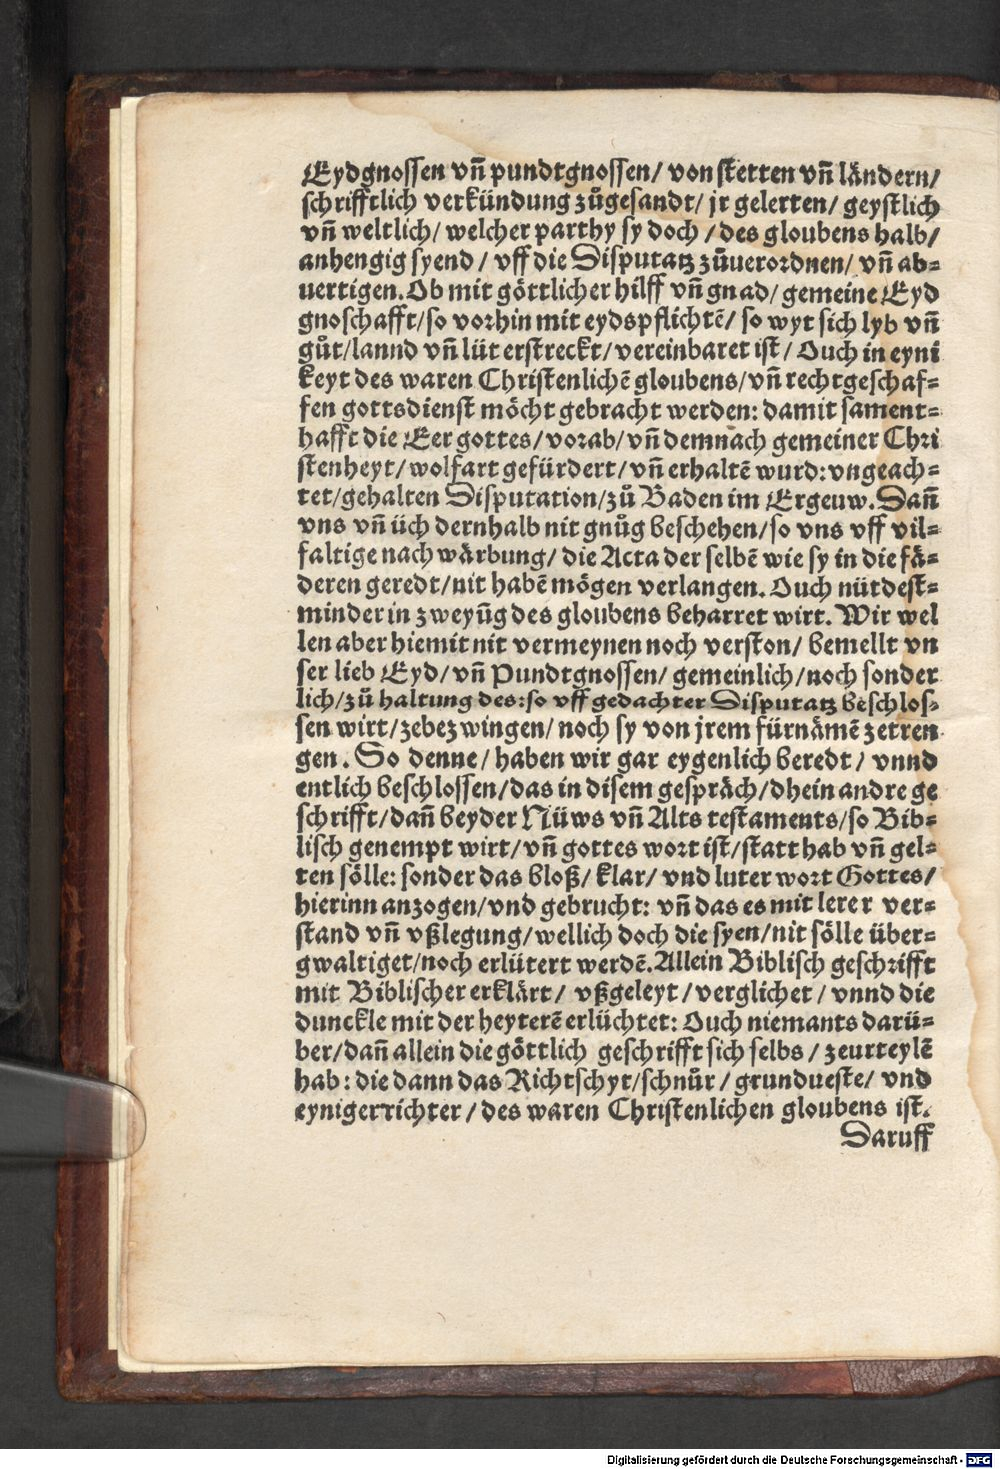 Eydgnossen vñ pundtgnossen/ von stetten vñ ländern/
schrifftlich verkündung zůgesandt/ jr gelerten/ geystlich
vñ weltlich/ welcher parthy sy doch / des gloubens halb/
anhengig syend / vff die Disputatz zůuerordnen/ vñ ab⸗
uertigen. Ob mit göttlicher hilff vñ gnad/ gemeine Eyd
gnoschafft/so vorhin mit eydspflichtē/ so wyt sich lyb vñ
gůt/lannd vñ lüt erstreckt/vereinbaret ist/ Ouch in eyni
keyt des waren Christenlichē gloubens/vñ rechtgeschaf⸗
fen gottsdienst möcht gebracht werden: damit sament⸗
hafft die Eer gottes/vorab/vñ demnach gemeiner Chri
stenheyt/wolfart gefürdert/vñ erhaltē wurd:vngeach⸗
tet/gehalten Disputation/zů Baden im Ergeuw. Dañ
vns vñ üch dernhalb nit gnůg beschehen/so vns vff vil⸗
faltige nachwärbung/ die Acta der selbē wie sy in die fä⸗
deren geredt/nit habē mögen verlangen. Ouch nütdest⸗
minder in zweyũg des gloubens beharret wirt. Wir wel
len aber hiemit nit vermeynen noch verston/ bemellt vn
ser lieb Eyd/vñ Pundtgnossen/ gemeinlich/noch sonder
lich/zů haltung des:so vff gedachter Disputatz beschlos⸗
sen wirt/zebezwingen/noch sy von jrem fürnämē zetren
gen. So denne/haben wir gar eygenlich beredt/ vnnd
entlich beschlossen/das in disem gespräch/dhein andre ge
schrifft/dañ beyder Nüws vñ Alts testaments/so Bib⸗
lisch genempt wirt/vñ gottes wort ist/statt hab vñ gel⸗
ten sölle: sonder das bloß/ klar/ vnd luter wort Gottes/
hierinn anzogen/vnd gebrucht: vñ das es mit lerer ver⸗
stand vñ vßlegung/wellich doch die syen/nit sölle über⸗
gwaltiget/noch erlütert werdē. Allein Biblisch geschrifft
mit Biblischer erklärt/ vßgeleyt/verglichet/ vnnd die
dunckle mit der heyterē erlüchtet: Ouch niemants darü⸗
ber/dañ allein die göttlich geschrifft sich selbs / zeurteylē
hab: die dann das Richtschyt/schnůr/ grundueste/ vnd
eynigerrichter/des waren Christenlichen gloubens ist.
Daruff
Digitalisierung gefördert durch die Deutsche Forschungsgemeinschaft - DFG